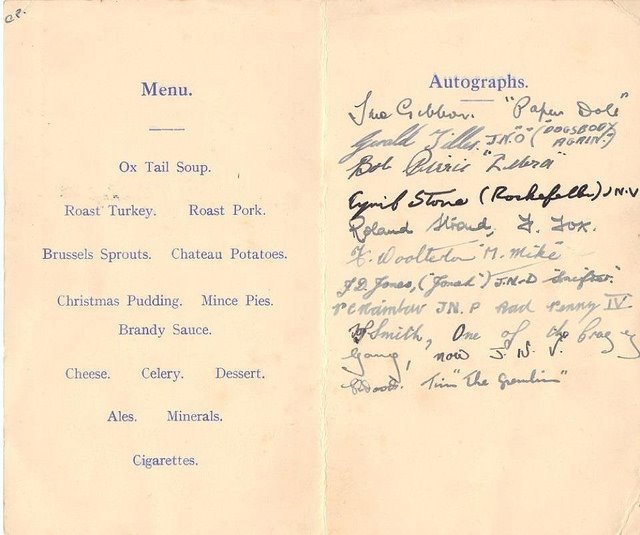 Menu.
Ox Tail Soup.
Roast Turkey. Roast Pork.
Brussels Sprouts. Chateau Potatoes.
Christmas Pudding. Mince Pies.
Brandy Sauce.
Cheese. Celery. Dessert.
Ales. Minerals.
Cigarettes.
Autographs.
Gibbon. "Paper Dole"
Gerald J.N.O" ("DOGSBODY
AGAIN.")
Bob
Cyril Stone (Rockefeller) J.N.V
Roland Strand, J. Fox.
"M. Mike"
J.D. Jones, ("Jonah") J.N.D
J.N.P and Penny IV
Smith, One of the
Gang, now J.N.V.
Tim "The Gremlin"